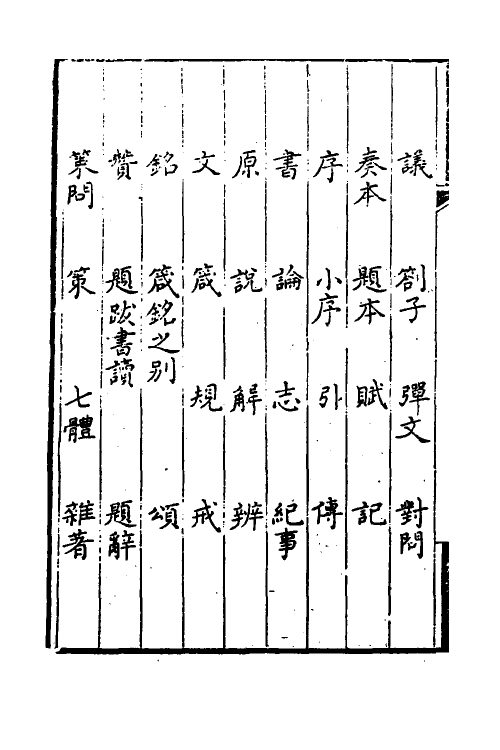 議　劄子　彈文　對問
奏本　題本　賦　記
序　小序　引　傳
書　論　志　紀事
原　說　解　辨
文　箴　規　戒
銘　箴銘之別　頌
贊　題跋書讀　題辭
策問　策　七體　雜著